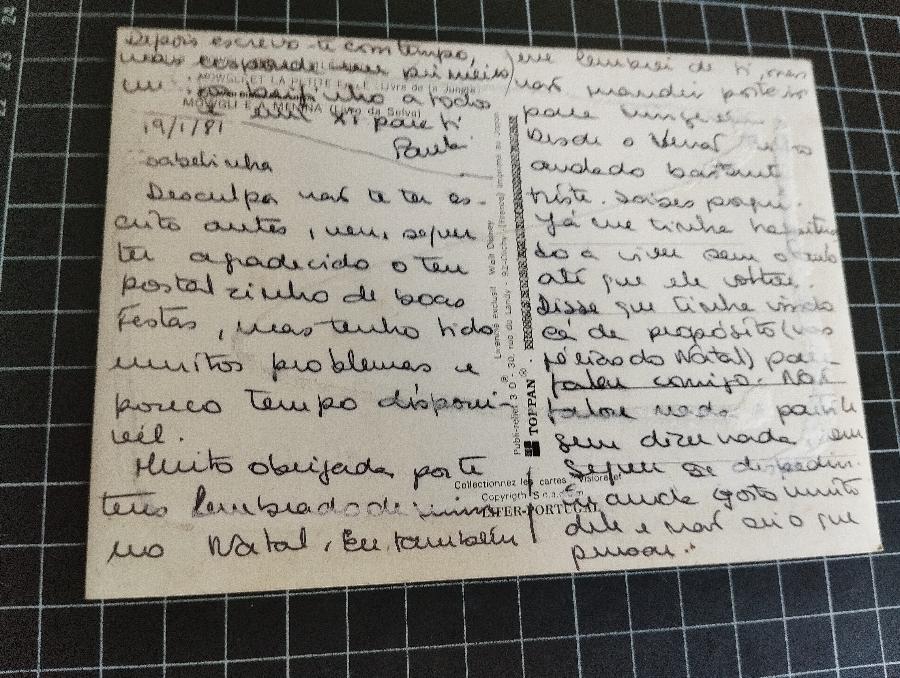 19/1/81
sabelinha
Desculpa não te ter es-
crito antes, nem, sequer
ter agradecido o teu
postalzinho de boas
Festas, mas tenho tido
muitos problemas e
pouco tempo disponí-
vel.
Muito obrigada por te
teres lembrado de mim
no Natal. Eu também
me lembrei de ti, mas
não mandei postais
para ninguém
Desde o Natal
andado bastante
triste. Sabes porquê.
Já me tinha habitua
do a viver sem o
até que ele voltou.
Disse que tinha vindo
cá de propósito (nas
férias do Natal) para
falar comigo. Não
falou nada e partiu
sem dizer nada, sem
sequer se despedir.
Ainda gosto muito
dele e não sei o que
pensar.
Depois escrevo-te com tempo,
mas responde-me primeiro
um beijinho a todos
e mil XX para ti
Paula
MOWGLI ET LA PETITE FILLE (Livre de la Jungle)
MOWGLI E A MENINA (Livro da Selva)
Licence exclusif Walt Disney
Publi-relief 3 D - 30, rue du Landy - 92 Clichy (France) Imprimé au Japon
TOPPAN
Collectionnez les cartes Visiorelief
Copyright S.n.a.
LIFER-PORTUGAL